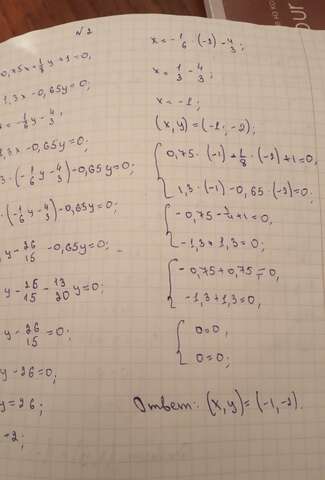 №2
0,75x+1/8y+1=0,
1,3x-0,65y=0;
x=-1/6y-4/3,
1,3x-0,65y=0;
3·(-1/6y-4/3)-0,65y=0;
·(-1/6y-4/3)-0,65y=0;
y-26/15-0,65y=0;
y-26/15-13/20y=0;
y-26/15=0;
y-26=0;
y=26;
-2;
x=-1/6·(-2)-4/3;
x=1/3-4/3;
x=-1;
(x,y)=(-1,-2);
0,75·(-1)+1/8·(-2)+1=0,
1,3·(-1)-0,65·(-2)=0;
-0,75-1/4+1=0,
-1,3+1,3=0;
-0,75+0,75=0,
-1,3+1,3=0;
0=0,
0=0;
Ответ: (x,y)=(-1,-2).